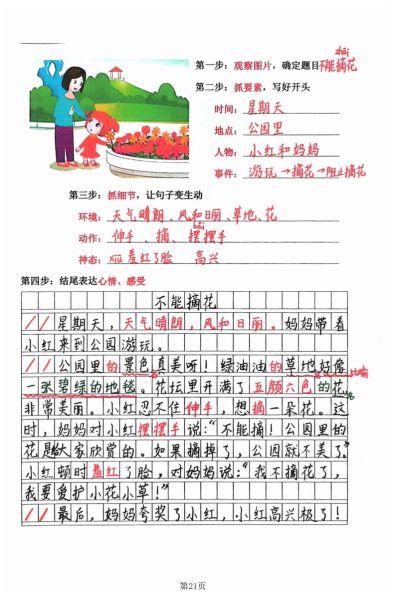 第一步：观察图片，确定题目不能摘花
zhāi
第二步：抓要素，写好开头
时间：星期天
地点：公园里
人物：小红和妈妈
事件：游玩→摘花→阻止摘花
第三步：抓细节，让句子变生动
环境：天气晴朗、风和日丽、草地、花
bǎi
动作：伸手、摘、摆摆手
神态：xiū羞红了脸 高兴
第四步：结尾表达心情、感受
不能摘花
星期天，天气晴朗，风和日丽。妈妈带着
小红来到公园游玩。
公园里的景色真美呀！绿油油的草地好像
一张碧绿的地毯。花坛里开满了五颜六色的花，
比喻
非常美丽。小红忍不住伸手，想摘一朵花。这
时，妈妈对小红摆摆手说：“不能摘！公园里的
花是给大家欣赏的。如果摘掉了，公园就不美了。”
小红顿时羞红了脸，对妈妈说：“我不摘花了，
我要爱护小花小草！”
最后，妈妈夸奖了小红，小红高兴极了！
第21页